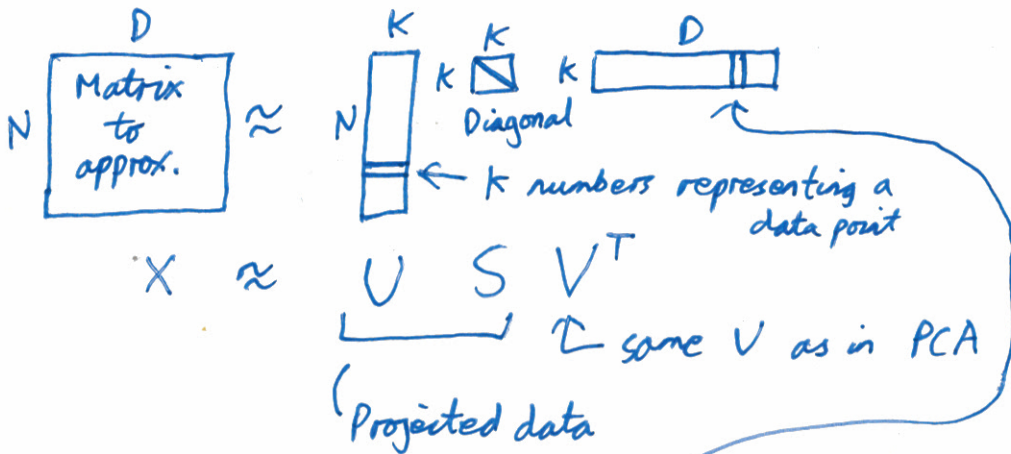 D K K D
N Matrix to approx. ≈ N K Diagonal K
← K numbers representing a
data point
X ≈ U S V^T
same V as in PCA
Projected data